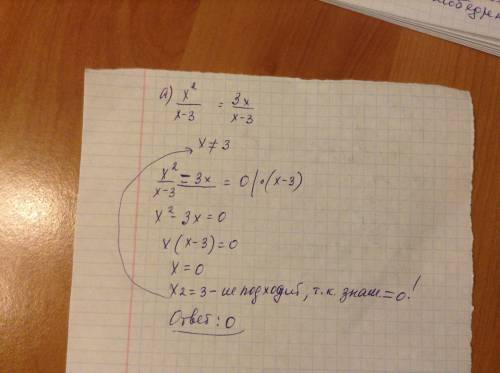 а) x²/(x-3) = 3x/(x-3)
x ≠ 3
(x² - 3x)/(x-3) = 0 | · (x-3)
x² - 3x = 0
x(x-3) = 0
x = 0
x2 = 3 - не подходит, т.к. знам. = 0!
Ответ: 0